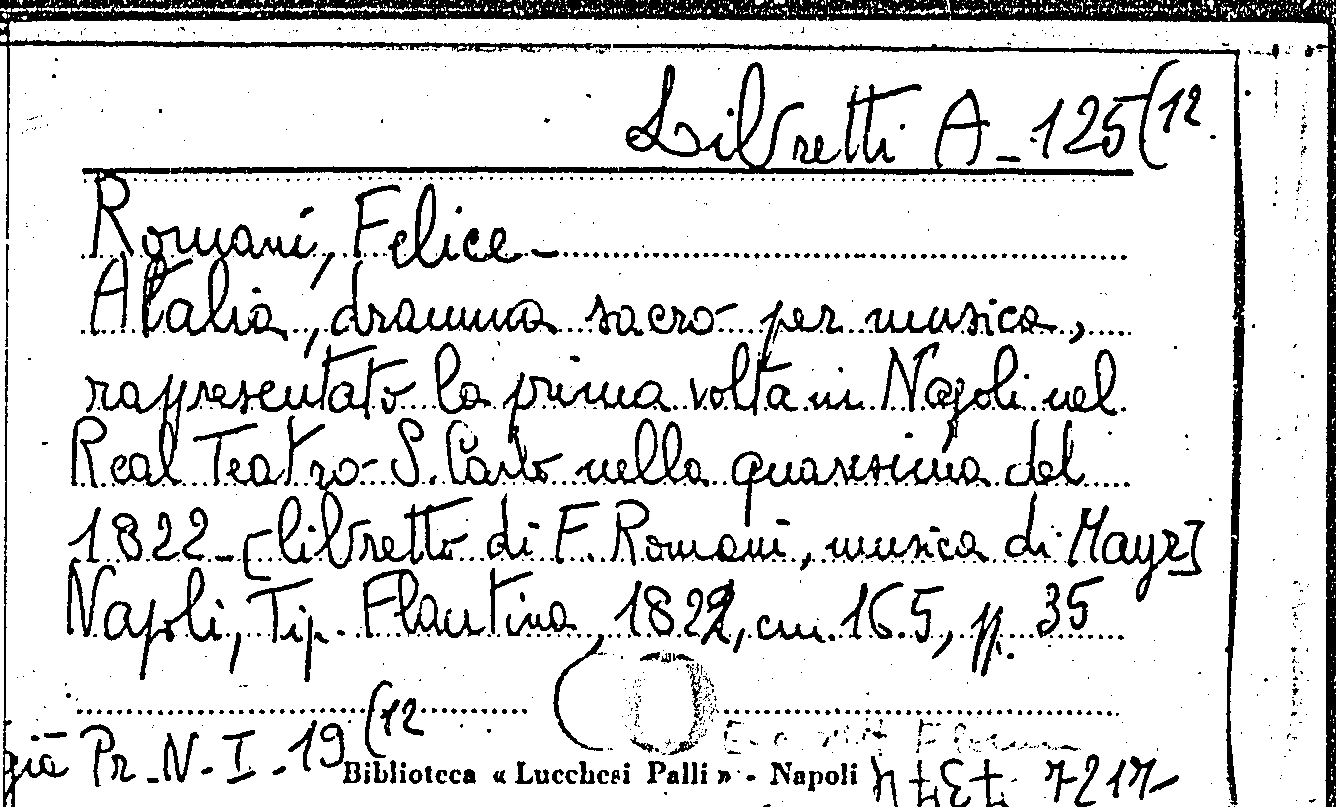 Libretti A - 125 (12
Romani, Felice -
Atalia, dramma sacro per musica,
rappresentato la prima volta in Napoli nel
Real Teatro S. Carlo nella quaresima del
1822 - [libretto di F. Romani, musica di Mayr]
Napoli, Tip. Flautina, 1822, cm. 16.5, pp. 35
già Pr. N. I. 19 (12
Biblioteca « Lucchesi Palli » - Napoli
7217